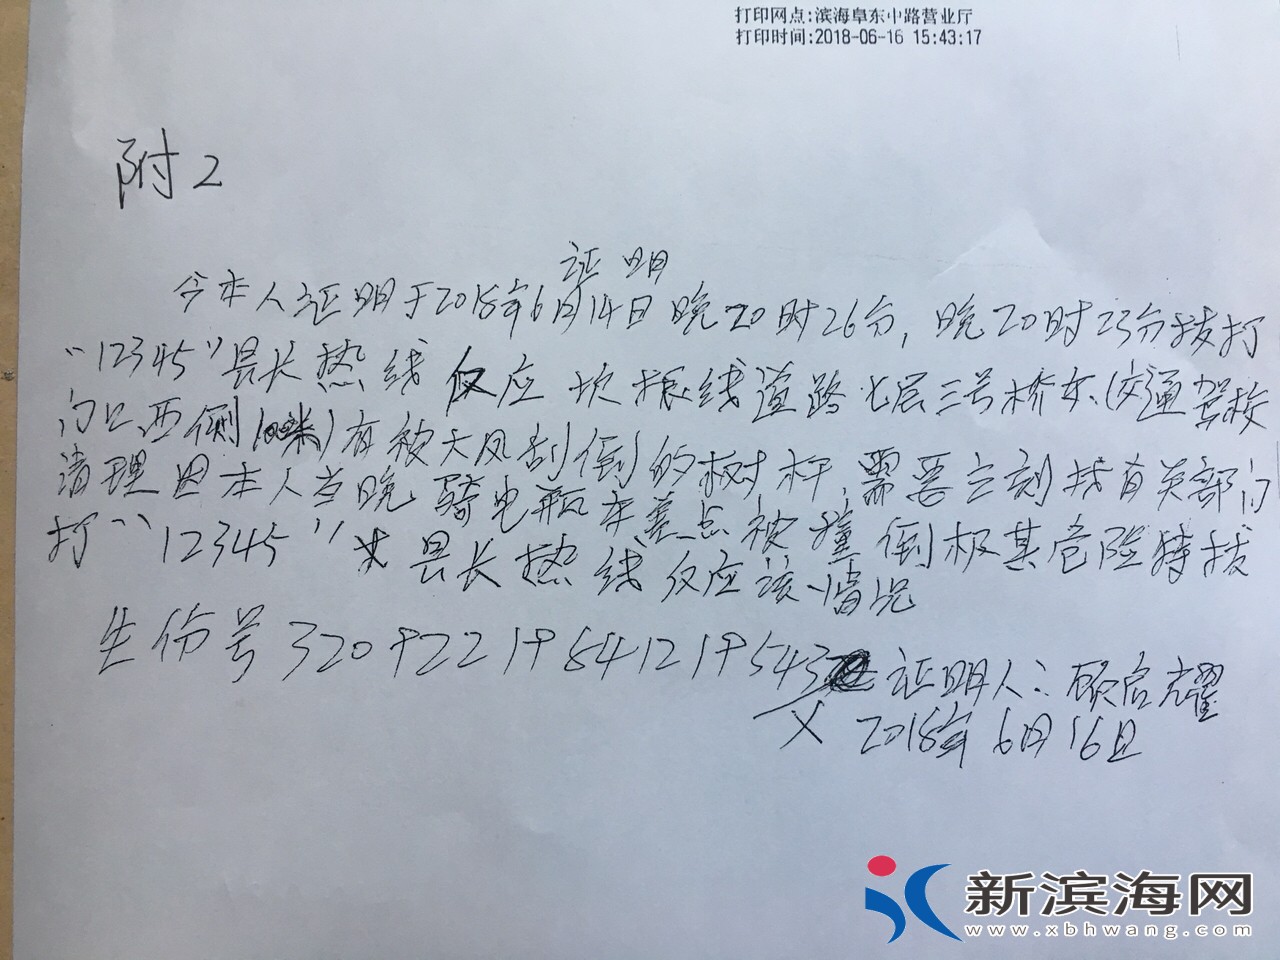 打印网点:滨海阜东中路营业厅
打印时间:2018-06-16 15:43:17
附2
证明
今本人证明于2018年6月14日晚20时26分,晚20时23分拨打
“12345”县长热线仅应坎振线道路七层三号桥东(交通驾校
门口西侧)有被大风刮倒的树杆,需要立刻找有关部门
清理因本人当晚骑电瓶车差点被撞倒极其危险特拨
打“12345”县长热线仅应该情况
生份号
证明人:顾启耀
2018年6月16日
新滨海网
www.xbhwang.com